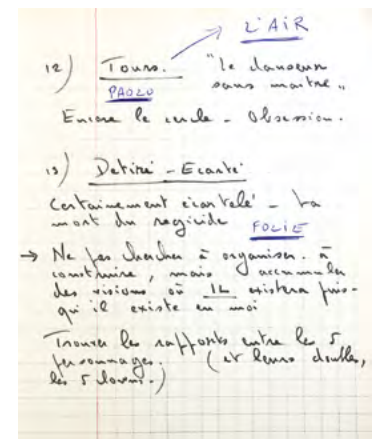 L'AIR
12) Tours. "le danseur
PAOLO sans maître"
Encore le cercle - Obsession.
13) Détiré - Ecarté
Certainement écartelé - La
mort du régicide
FOLIE
→ Ne pas chercher à organiser. à
construire, mais accumuler
des visions où IL existera puis-
qu'il existe en moi
Trouver les rapports entre les 5
personnages. (et leurs doubles,
les 5 clowns.)